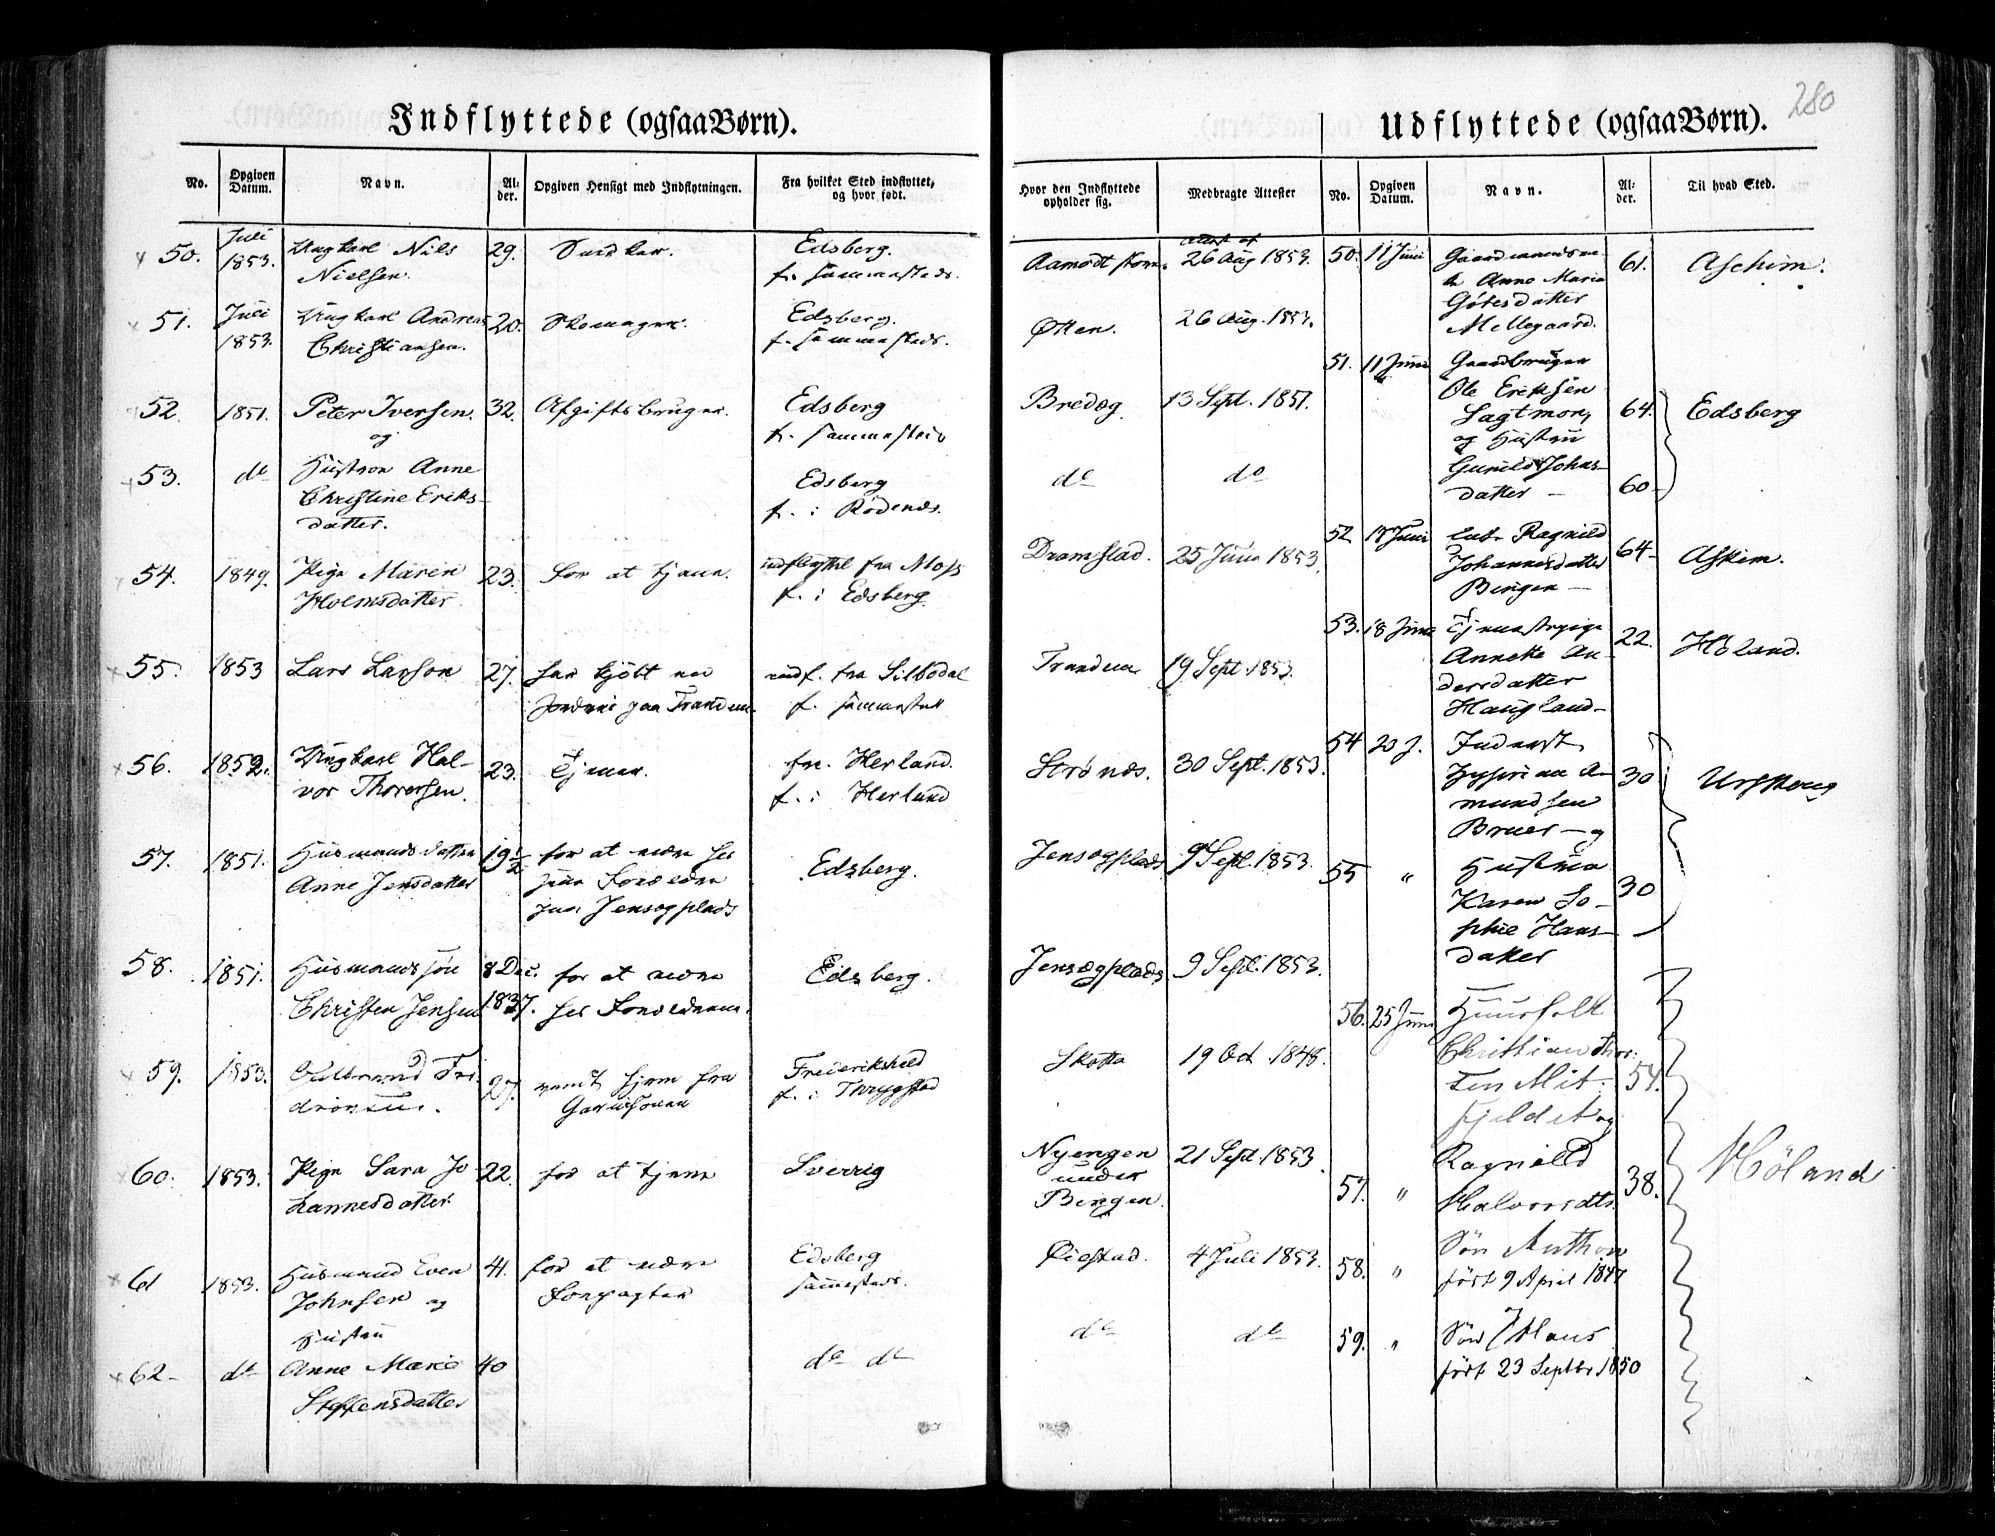 280
Indflyttede (ogsaa Børn).
No.
Opgiven Datum.
Navn.
Alder.
Opgiven Hensigt med Indflytningen.
Fra hvilket Sted indflyttet, og hvor født.
Hvor den Indflyttede opholder sig.
Medbragte Attester
50. Juli 1853. Ungkarl Nils Nielsen. 29. Snedker. Edsberg. f. sammesteds. Aamodt attest af 26 Aug 1853.
51. Juli 1853. Ungkarl Andreas Christiansen. 20. Skomager. Edsberg. f. sammesteds. 26 Aug. 1853.
52. 1851. Peter Iversen og 32. Afgiftsbruger. Edsberg f. sammesteds Bredeg. 13 Sept. 1851.
53. do Hustroe Anne Christine Eriksdatter. Edsberg f. i Rødenæs. do do
54. 1849. Pige Maren Holmsdatter. 23. for at tjene. indflyttet fra Moss f. i Edsberg. Dramstad. 25 Juni 1853.
55. 1853 Lars Larson 27. har kjøbt en Jordvei paa Trandem. indf. fra Silbodal f. sammested Trandem 19 Sept. 1853.
56. 1852. Ungkarl Halvor Thorersen. 23. Tjener. fra Herland. f. i Herland Strønæs. 30 Sept. 1853.
57. 1851. Husmandsdatter Anne Jensdatter 19½ for at være hos sine Forældre paa Jensegplads Edsberg. Jensegplads 9 Sept. 1853.
58. 1851. Husmandssøn Christen Jensen 8 Dec. 1837. for at være hos Forældrene. Edsberg. Jensegplads 9 Sept. 1853.
59. 1853. 27. vendt hjem fra Garnisonen Frederikshald f. i Thrygstad Skotta 19 Oct. 1848.
60. 1853. Pige Sara Johannesdatter 22. for at tjene Sverrig Nyengen under Bingen. 21 Sept. 1853.
61 1853. Husmand Even Johnsen og Hustru 41. for at være Forpagter Edsberg sammesteds. Øiestad. 4 Juli 1853.
62 do Anne Marie Steffensdatter 40 do do do do
Udflyttede (ogsaa Børn).
No.
Opgiven Datum.
Navn.
Alder.
Til hvad Sted.
50. 11 Juni Anne Maria Gótesdatter Mellegaard. 61. Aschim.
51. 11 Juni Gaardbruger Ole Eriksen Sagtmon, og Hustru 64. Edsberg
Gunild Johansdatter 60
52 18 Juni Ragnild Johannesdatter Bingen 64 Askim.
53. 18 Juni Tjenestepige Annette Andersdatter Haugland 22. Høland.
54 20 J. Inderst Amundsen Bruer og 30 Urskoug
55 " Hustrue Karen Sophie Hansdatter 30
56. 25 Juni Huusfolk Christian Thorsen Mitfjeldet og 54. Høland
57. " Ragnild Halvorsdtr. 38.
58. " Søn Anthon født 9 April 1847
59. " Søn Hans født 23 Septbr 1850